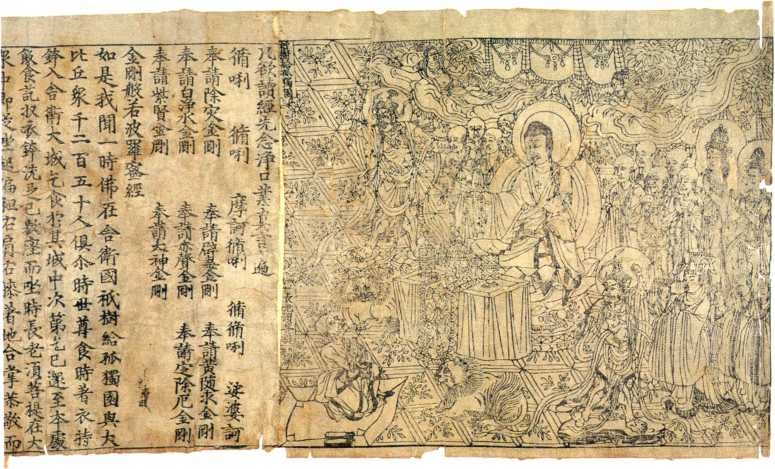 凡欲讀經先念淨口業真言一遍
脩唎 脩唎 摩訶脩唎 脩脩唎 娑婆訶
奉請除灾金剛 奉請辟毒金剛 奉請黃隨求金剛
奉請白淨水金剛 奉請赤聲金剛 奉請定除厄金剛
奉請紫賢金剛 奉請大神金剛
金剛般若波羅蜜經
如是我聞一時佛在舍衛國祇樹給孤獨園與大
比丘衆千二百五十人俱尒時世尊食時著衣持
鉢入舍衛大城乞食於其城中次第乞已還至本處
飯食訖収衣鉢洗足已敷座而坐時長老湏菩提在大
衆中即從坐起偏袒右肩右膝著地合掌恭敬而